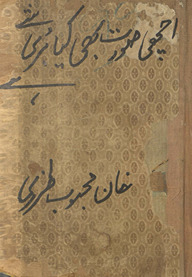 اچھی صورت بھی کیا بری شے
ہے
خان محبوب طرزی